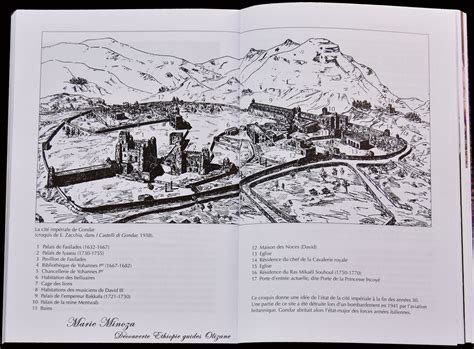 La cité impériale de Gondar
(croquis de E. Zacchia, dans I Castelli di Gondar, 1938).
1 Palais de Fasilades (1632-1667)
2 Palais de Iyasou (1730-1755)
3 Pavillon de Fasilades
4 Bibliothèque de Yohannes Iᵉʳ (1667-1682)
5 Chancellerie de Yohannes Iᵉʳ
6 Habitation des belluaires
7 Cage des lions
8 Habitations des musiciens de David III
9 Palais de l'empereur Bakkafa (1721-1730)
10 Palais de la reine Mentouab
11 Bains
12 Maison des Noces (David)
13 Eglise
14 Résidence du chef de la Cavalerie royale
15 Eglise
16 Résidence du Ras Mikaël Souhoul (1750-1770)
17 Porte d'entrée actuelle, dite Porte de la Princesse Incoyé
Ce croquis donne une idée de l'état de la cité impériale à la fin des années 30.
Une partie de ce site a été détruite lors d'un bombardement en 1941 par l'aviation
britannique. Gondar abritait alors l'état-major des forces armées italiennes.
Marie Minoza
Découverte Ethiopie guides Olizane